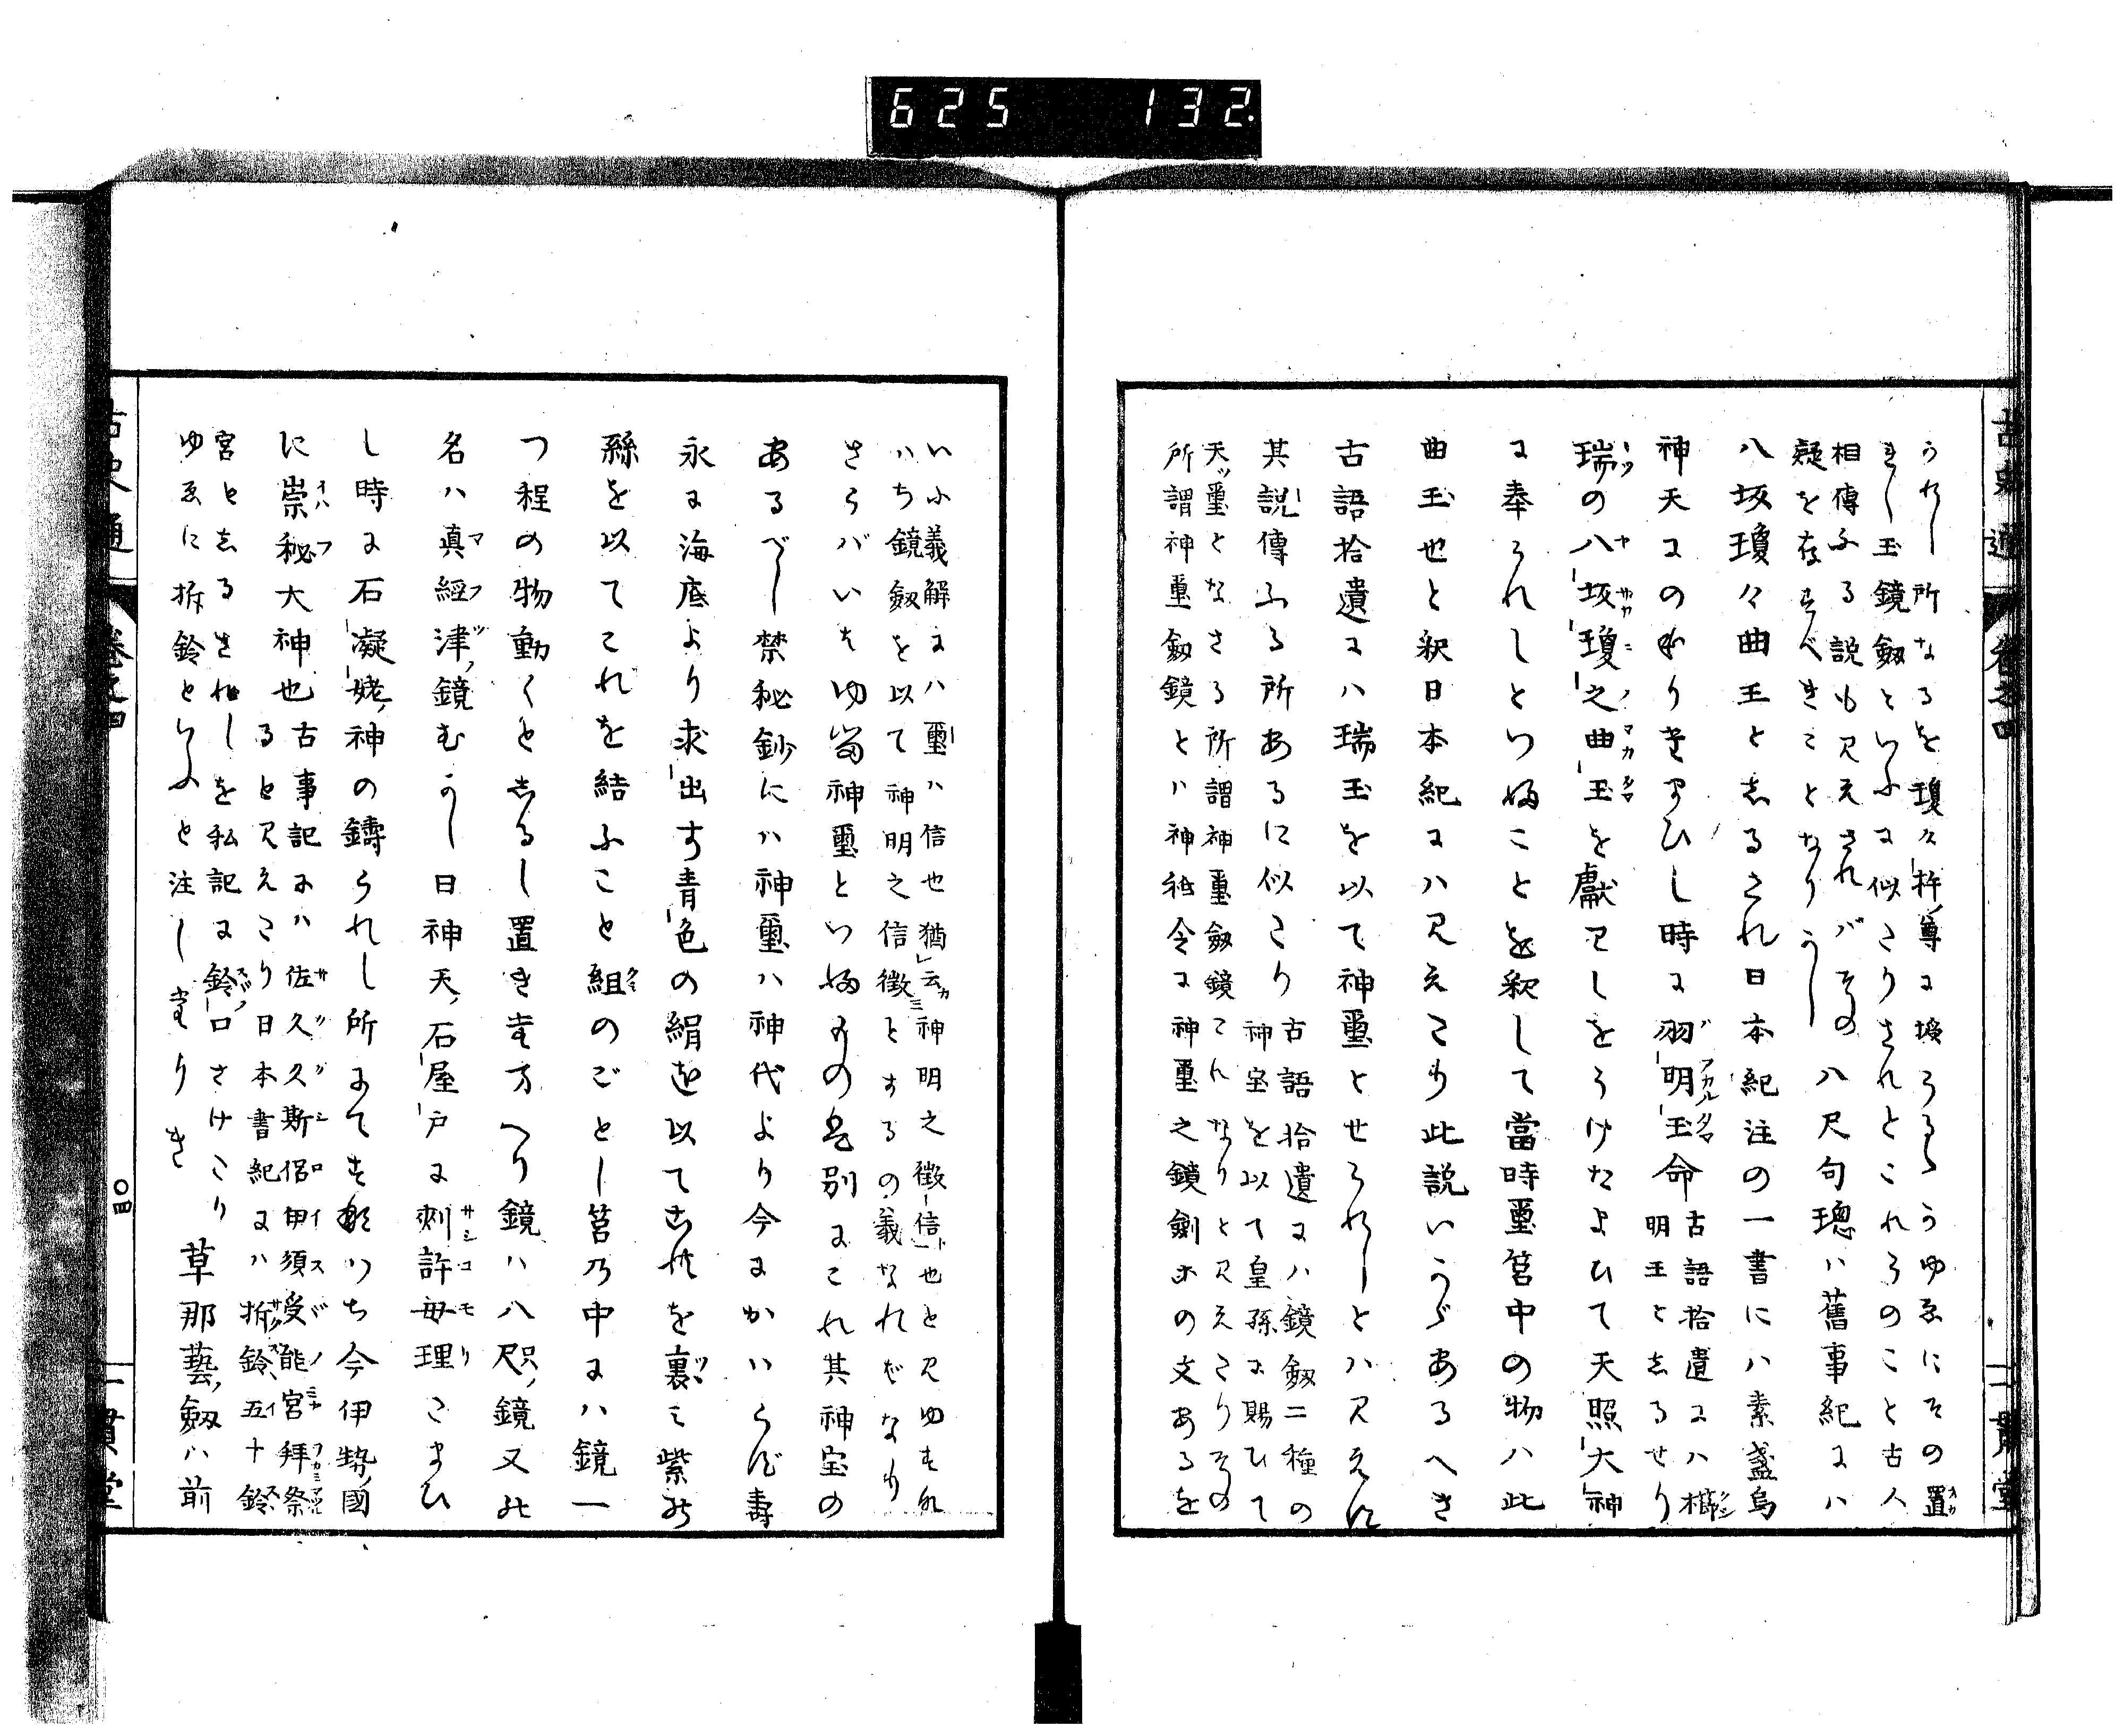 625 132.
古史通 巻之四 一貫堂
うれし所なるを瓊々杵尊に授らるゝうゆゑにその置
きし玉鏡剱といふに似たりされとこれらのこと古人
相傳ふる説も見えされバその
疑を存すべきことなりうし
八尺句璁ハ舊事紀にハ
八坂瓊々曲王としるされ日本紀注の一書にハ素盞烏
神天にのぼりたまひし時に羽明玉命
古語拾遺にハ櫛
明王としるせり
瑞の八坂瓊之曲玉を獻りしをうけたまひて天照大神
に奉られしといふことを釈して當時璽筥中の物ハ此
曲玉也と釈日本紀にハ見えたり此説いうゞあるへき
古語拾遺にハ瑞玉を以て神璽とせられしとハ見えず
其説傳ふる所あるに似たり
古語拾遺にハ鏡剱二種の
神宝を以て皇孫に賜ひて
天ツ璽となさる所謂神璽剱鏡これなりと見えたりその
所謂神璽剱鏡とハ神祇令に神璽之鏡劍ホの文あるを
いふ義解にハ璽ハ信也猶云神明之徴信也と見ゆすな
ハち鏡剱を以て神明之信徴とするの義なればなり
さらバいはゆる神璽といふものハ別にこれ其神宝の
あるべし禁秘鈔にハ神璽ハ神代より今にかハらず壽
永に海底より求出す青色の絹を以てこれを裏ミ紫の
絲を以てこれを結ふこと組のごとし筥乃中にハ鏡一
つ程の物動くとしるし置きたまへり鏡ハ八咫鏡又の
名ハ真經津鏡むかし日神天石屋戸に刺許母理たまひ
し時に石凝姥神の鑄られし所にてすなハち今伊勢國
に崇秘大神也
古事記にハ佐久久斯侶伊須受能宮拜祭
ると見えたり日本書紀にハ拆鈴五十鈴
宮としるされしを私記に鈴口さけたり
ゆゑに拆鈴といふと注したりき
草那藝剱ハ前
古史通 巻之四 〇四 一貫堂